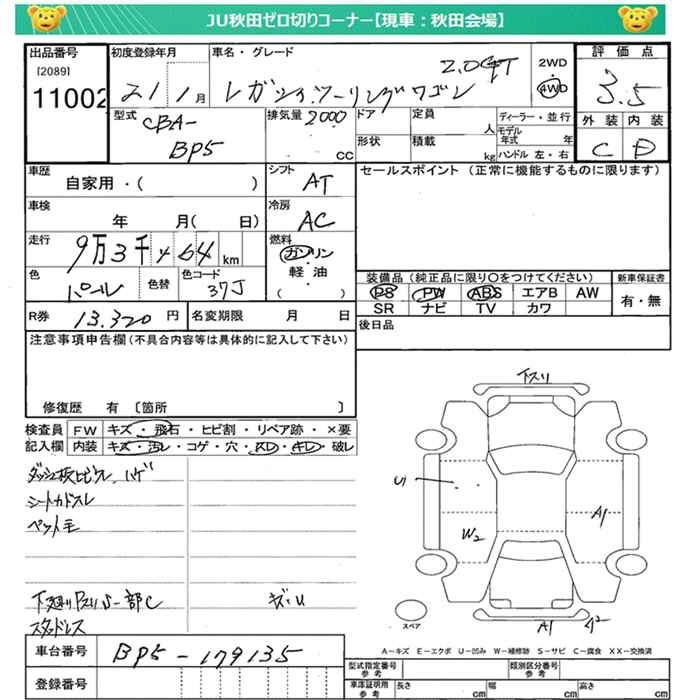 JU秋田ゼロ切りコーナー【現車：秋田会場】
出品番号 初度登録年月 車名・グレード 2WD 評価点
[2089] 11002 21 1月 レガシィツーリングワゴン 2.0GT 4WD 3.5
型式 CBA-BP5 排気量 2000 CC ドア 定員 人 ディーラー・並行 外装 内装
形状 積載 kg モデル年式 年 ハンドル 左・右 C D
車歴 自家用・( ) シフト AT セールスポイント (正常に機能するものに限ります)
車検 年 月( 日) 冷房 AC
走行 9万3千464km 燃料 ガソリン・軽油・( )
色 パール 色替 色コード 37J
装備品 (純正品に限り○をつけてください) 新車保証書
PS PW ABS エアB AW 有・無
SR ナビ TV カワ
R券 13.320円 名変期限 月 日 後日品
注意事項申告欄(不具合内容等は具体的に記入して下さい)
修復歴 有 〔箇所 〕
検査員 FW キズ・飛石・ヒビ割・リペア跡・×要
記入欄 内装 キズ・汚レ・コゲ・穴・
・破レ
ハゲ
シートカドスレ
ペット毛
スタッドレス
キズU
下スリ
U1
W2
A1
A1
スペア
A-キズ E-エクボ U-凹み W-補修跡 S-サビ C-腐食 XX-交換済
車台番号 BP5-179135
登録番号
型式指定番号 参考 類別区分番号 参考
車庫証明用 参考 長さ cm 幅 cm 高さ cm